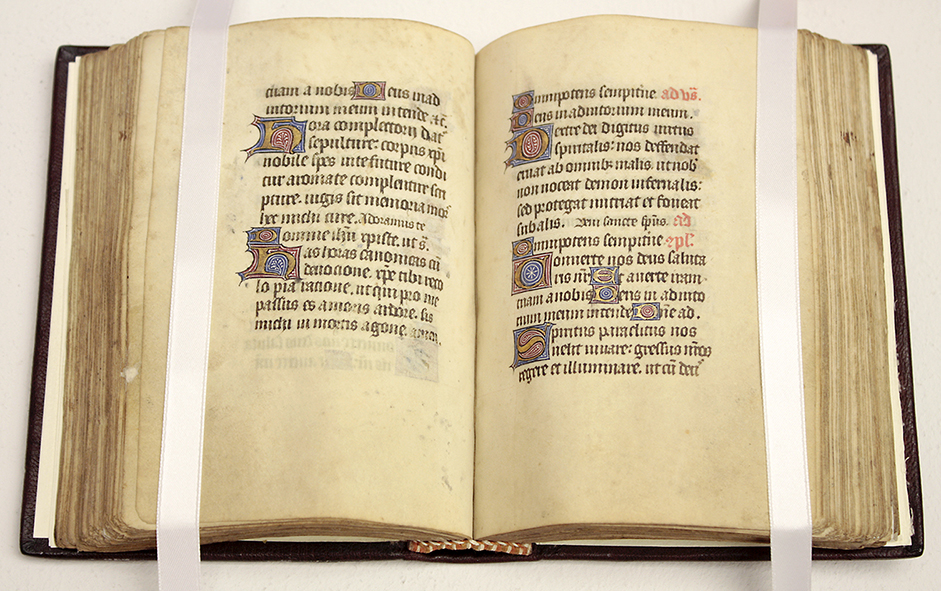 ctiam a nobis Deus in ad
iutorium meum intende ac̄.
Hora completorii dat̄
sepulture: corpus xp̄i
nobile spes uite future condi
tur aromate complentur scri
pture. iugis sit memoria mors
hec michi cure. Adoramus te
Domine ih̄u xp̄iste. ut s̄.
Has horas canonicas cū
deuocione. xp̄e tibi reco
lo pia racione. ut qui pro me
passus es amoris ardore. sis
michi in mortis agone. amen.
Omnipotens sempitne. ad vs̄.
Deus in adiutorium meum.
Dextre dei digitus uirtus
spiritalis: nos deffendat
eruat ab omnib; malis. ut nob̄
non noceat demon infernalis:
sed protegat nutriat et foueat
sub alis. Veni sancte sp̄us. ad
Omnipotens sempitne cp̄l.
Conuerte nos deus saluta
ris nr̄ Et auerte iram
tuam a nobis Deus in adiuto
rium meum intende Dn̄e ad.
Spiritus paraclitus nos
uelit iuuare: gressus nr̄os
regere et illuminare. ut cū deus